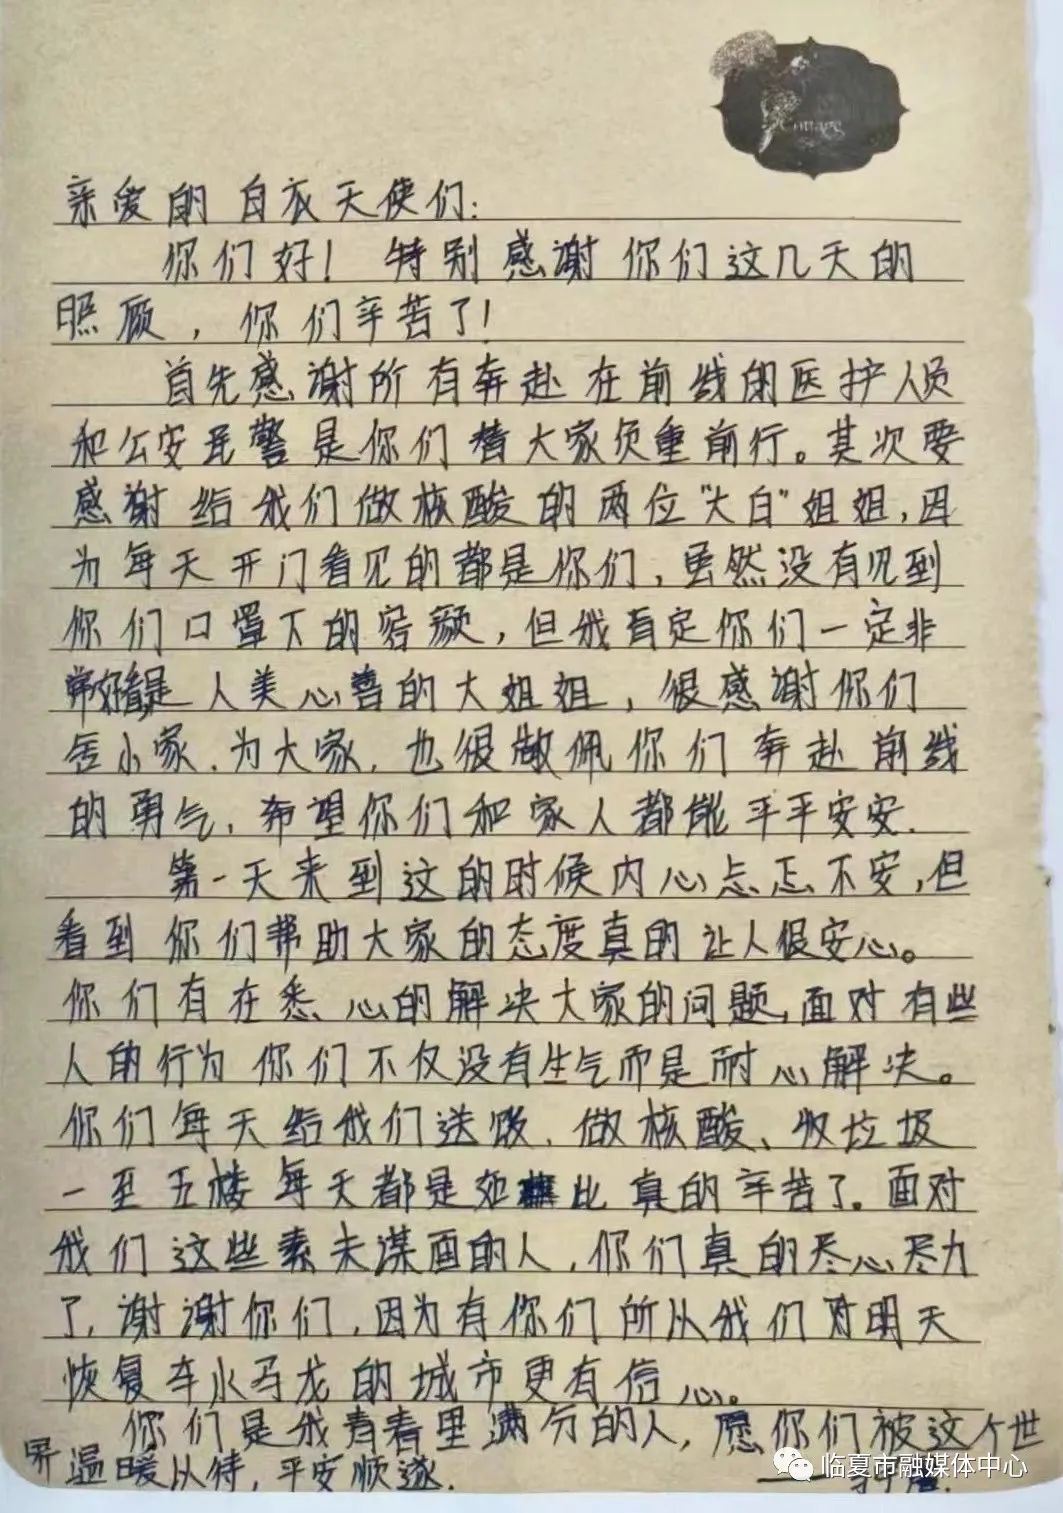 Cottage
亲爱的白衣天使们:
你们好！特别感谢你们这几天的
照顾，你们辛苦了！
首先感谢所有奔赴在前线的医护人员
和公安民警是你们替大家负重前行。其次要
感谢给我们做核酸的两位"大白"姐姐,因
为每天开门看见的都是你们,虽然没有见到
你们口罩下的容颜,但我肯定你们一定非
常 是人美心善的大姐姐,很感谢你们
舍小家.为大家,也很敬佩你们奔赴前线
的勇气,希望你们和家人都能平平安安.
第一天来到这的时候内心忐忑不安,但
看到你们帮助大家的态度真的让人很安心。
你们有在悉心的解决大家的问题,面对有些
人的行为你们不仅没有生气而是耐心解决。
你们每天给我们送饭、做核酸、收垃圾
一至五楼每天都是如此真的辛苦了。面对
我们这些素未谋面的人,你们真的尽心尽力
了,谢谢你们,因为有你们所以我们对明天
恢复车水马龙的城市更有信心。
你们是我青春里满分的人,愿你们被这个世
界温暖以待,平安顺遂.
临夏市融媒体中心